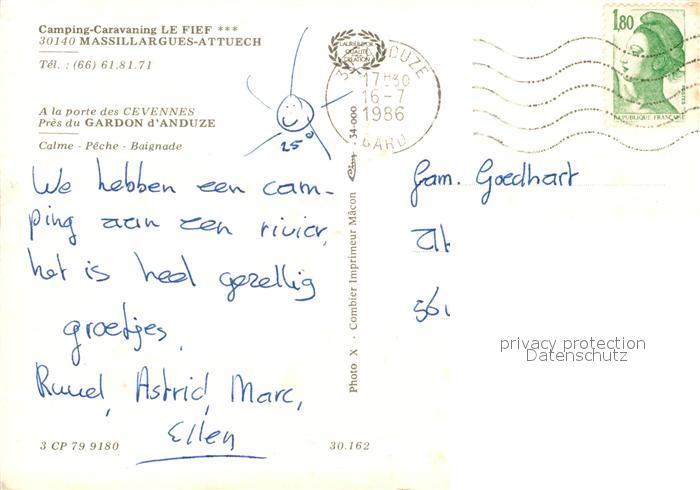 Camping-Caravaning LE FIEF ***
30140 MASSILLARGUES-ATTUECH
Tél. : (66) 61.81.71
A la porte des CEVENNES
Près du GARDON d'ANDUZE
Calme - Pêche - Baignade
25°
We hebben een cam-
ping aan een rivier,
het is heel gezellig
groetjes,
Ruud, Astrid, Marc,
Ellen
3 CP 79 9180
30.162
Photo X - Combier Imprimeur Mâcon
34-000
LAURIER D'OR
QUALITÉ
CRÉATION
ANDUZE
17H30
16-7
1986
GARD
1,80
POSTES
REPUBLIQUE FRANÇAISE
Fam. Goedhart
561
privacy protection
Datenschutz